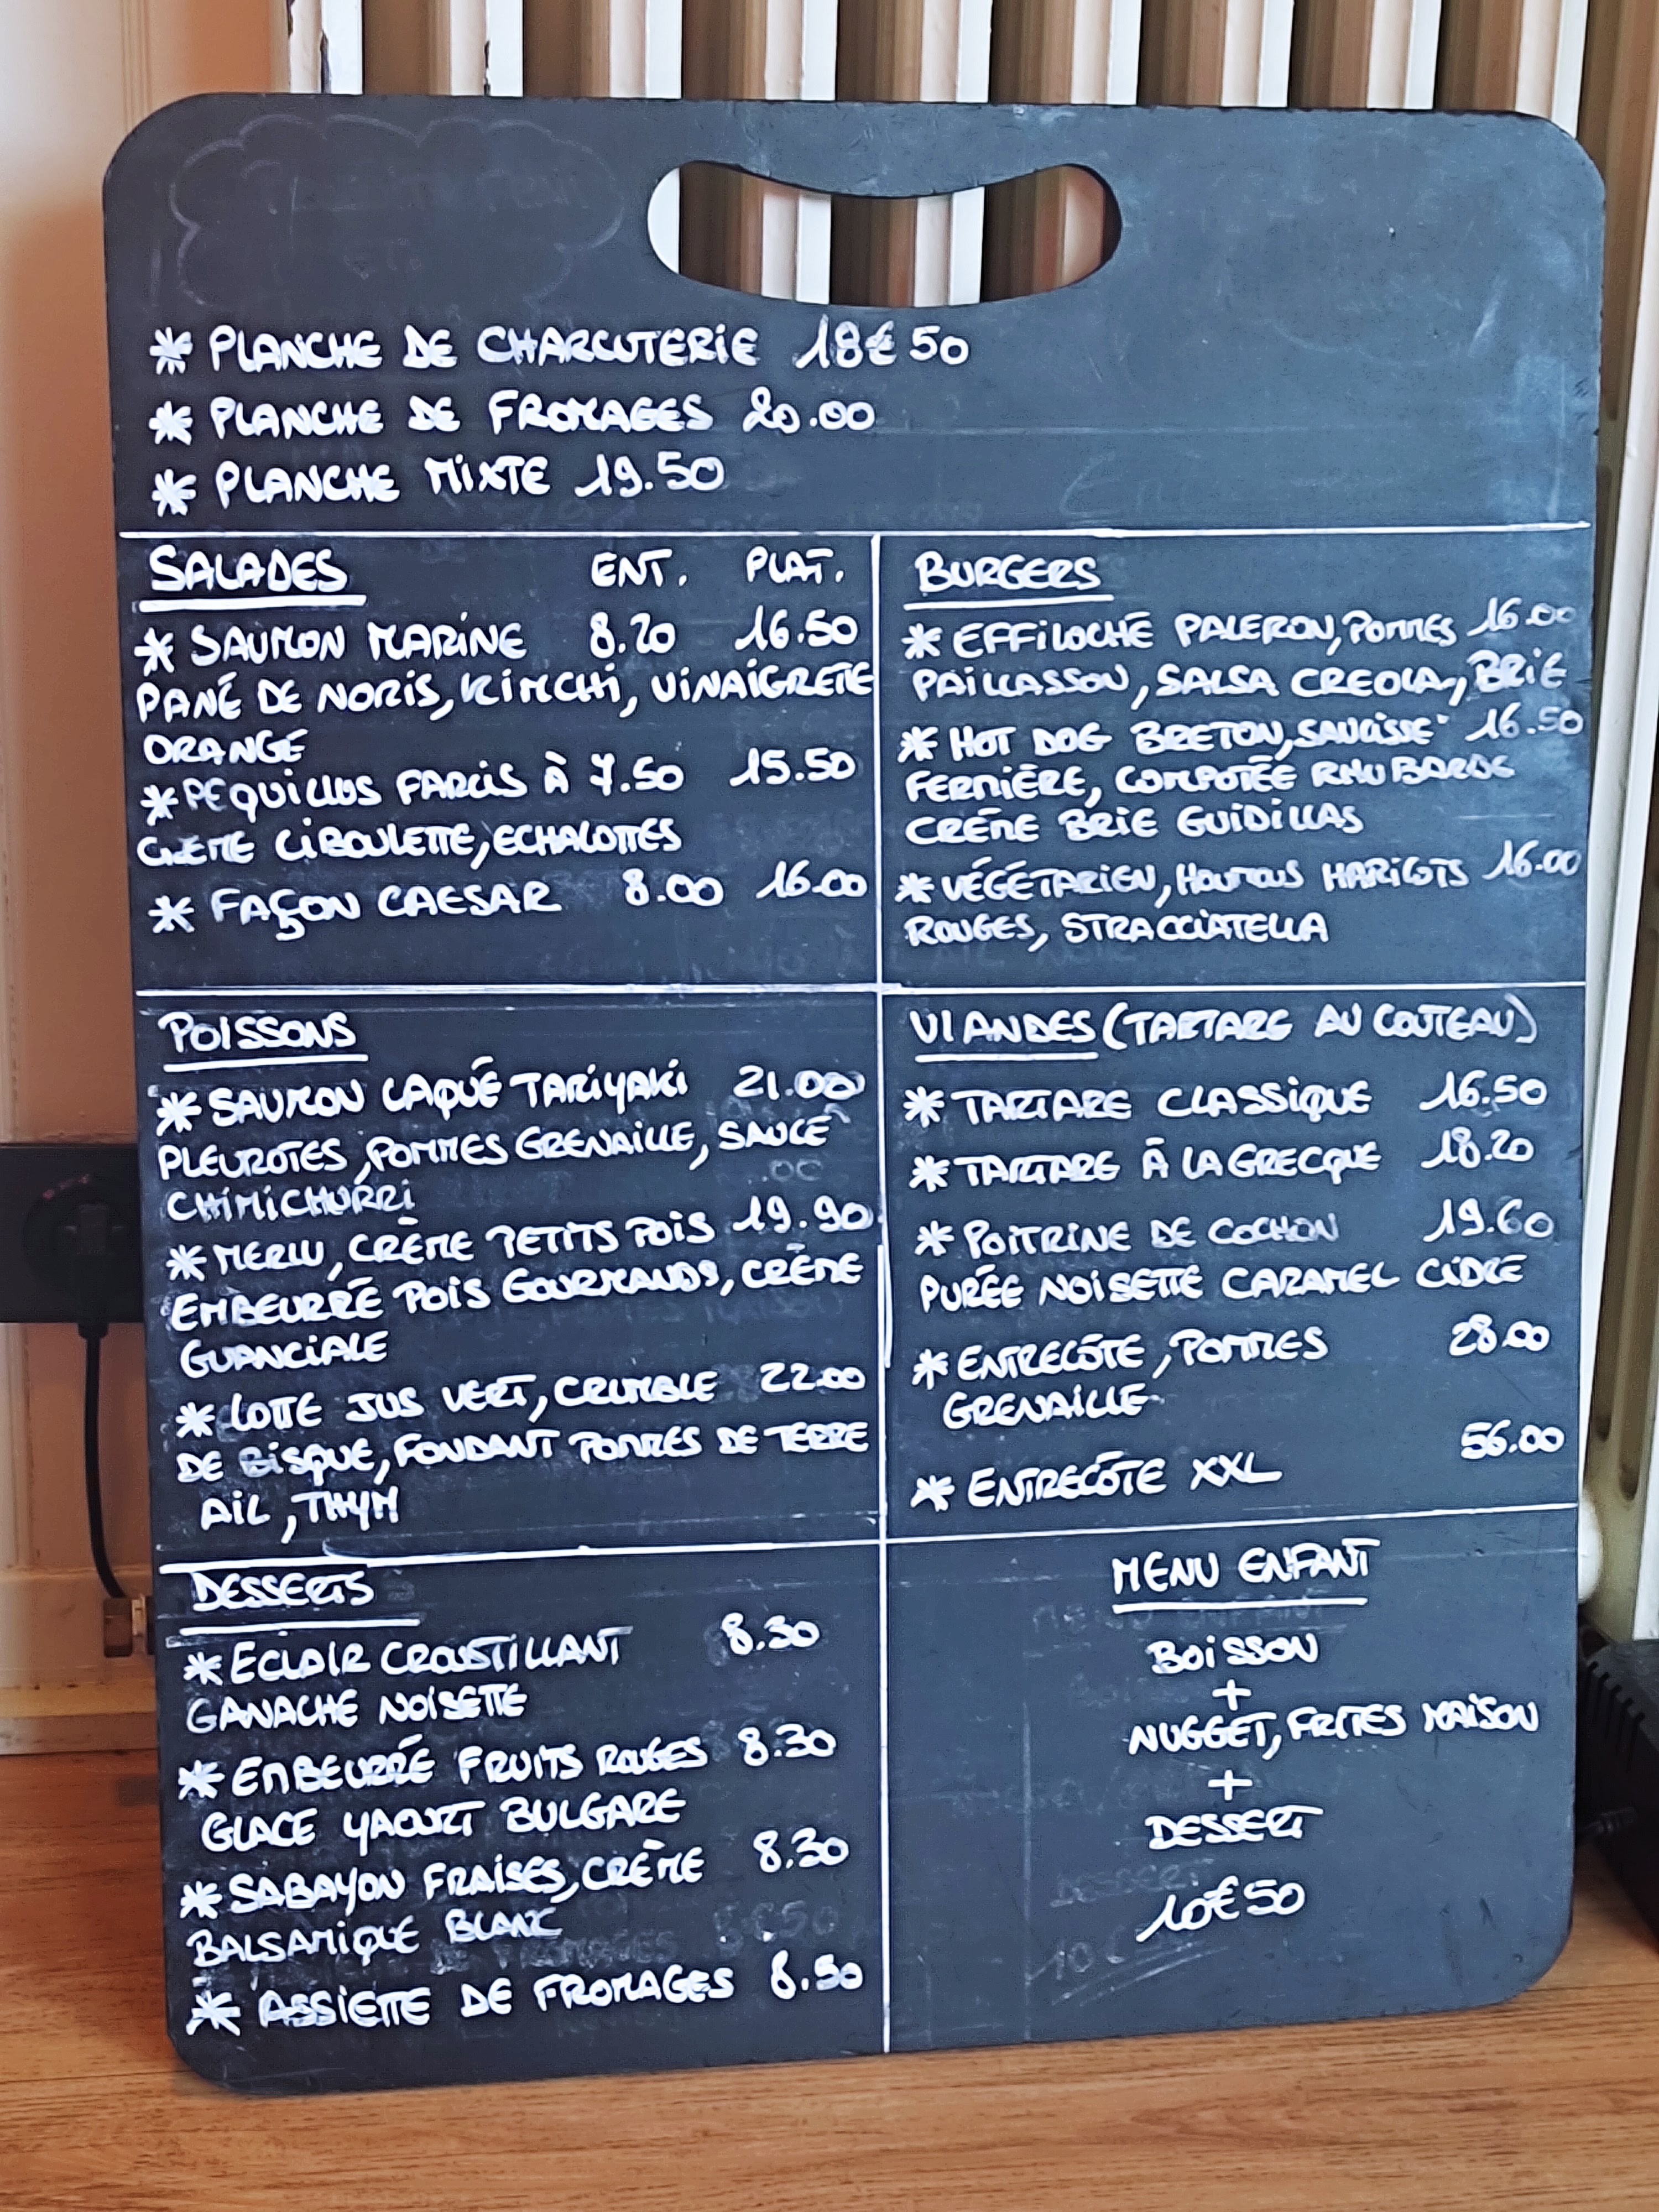 * PLANCHE DE CHARCUTERIE 18€50
* PLANCHE DE FROMAGES 20.00
* PLANCHE MIXTE 19.50
SALADES ENT. PLAT.
* SAUMON MARINE 8.20 16.50
PANÉ DE NORIS, KIMCHI, VINAIGRETTE
ORANGE
* PEQUILLOS FARCIS À 7.50 15.50
CREME CIBOULETTE, ECHALOTTES
* FAÇON CAESAR 8.00 16.00
BURGERS
* EFFILOCHÉ PALERON, POMMES 16.00
PAILLASSON, SALSA CREOLA, BRIE
* HOT DOG BRETON, SAUCISSE 16.50
FERMIÈRE, COMPOTÉE RHUBARBE
CRÈME BRIE GUIDILLAS
* VÉGÉTARIEN, HOUMOUS HARICOTS 16.00
ROUGES, STRACCIATELLA
POISSONS
* SAUMON LAQUÉ TARIYAKI 21.00
PLEUROTES, POMMES GRENAILLE, SAUCE
CHIMICHURRI
* MERLU, CRÈME PETITS POIS 19.90
EMBEURRÉ POIS GOURMANDS, CRÈME
GUANCIALE
* LOTTE JUS VERT, CRUMBLE 22.00
DE BISQUE, FONDANT POMMES DE TERRE
AIL, THYM
VIANDES (TARTARE AU COUTEAU)
* TARTARE CLASSIQUE 16.50
* TARTARE À LA GRECQUE 18.20
* POITRINE DE COCHON 19.60
PURÉE NOISETTE CARAMEL CIDRE
* ENTRECÔTE, POMMES 28.00
GRENAILLE
* ENTRECÔTE XXL 56.00
DESSERTS
* ECLAIR CROUSTILLANT 8.30
GANACHE NOISETTE
* EMBEURRÉ FRUITS ROUGES 8.30
GLACE YAOURT BULGARE
* SABAYON FRAISES, CRÈME 8.30
BALSAMIQUE BLANC
* ASSIETTE DE FROMAGES 8.50
MENU ENFANT
BOISSON
+
NUGGET, FRITES MAISON
+
DESSERT
10€50